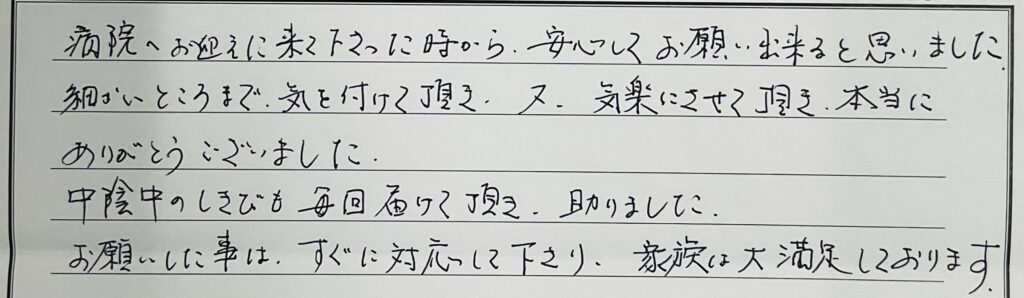 病院へお迎えに来て下さった時から、安心してお願い出来ると思いました。
細かいところまで、気を付けて頂き、又、気楽にさせて頂き、本当に
ありがとうございました。
中陰中のしきびも毎回届けて頂き、助りました。
お願いした事は、すぐに対応して下さり、家族は大満足しております。